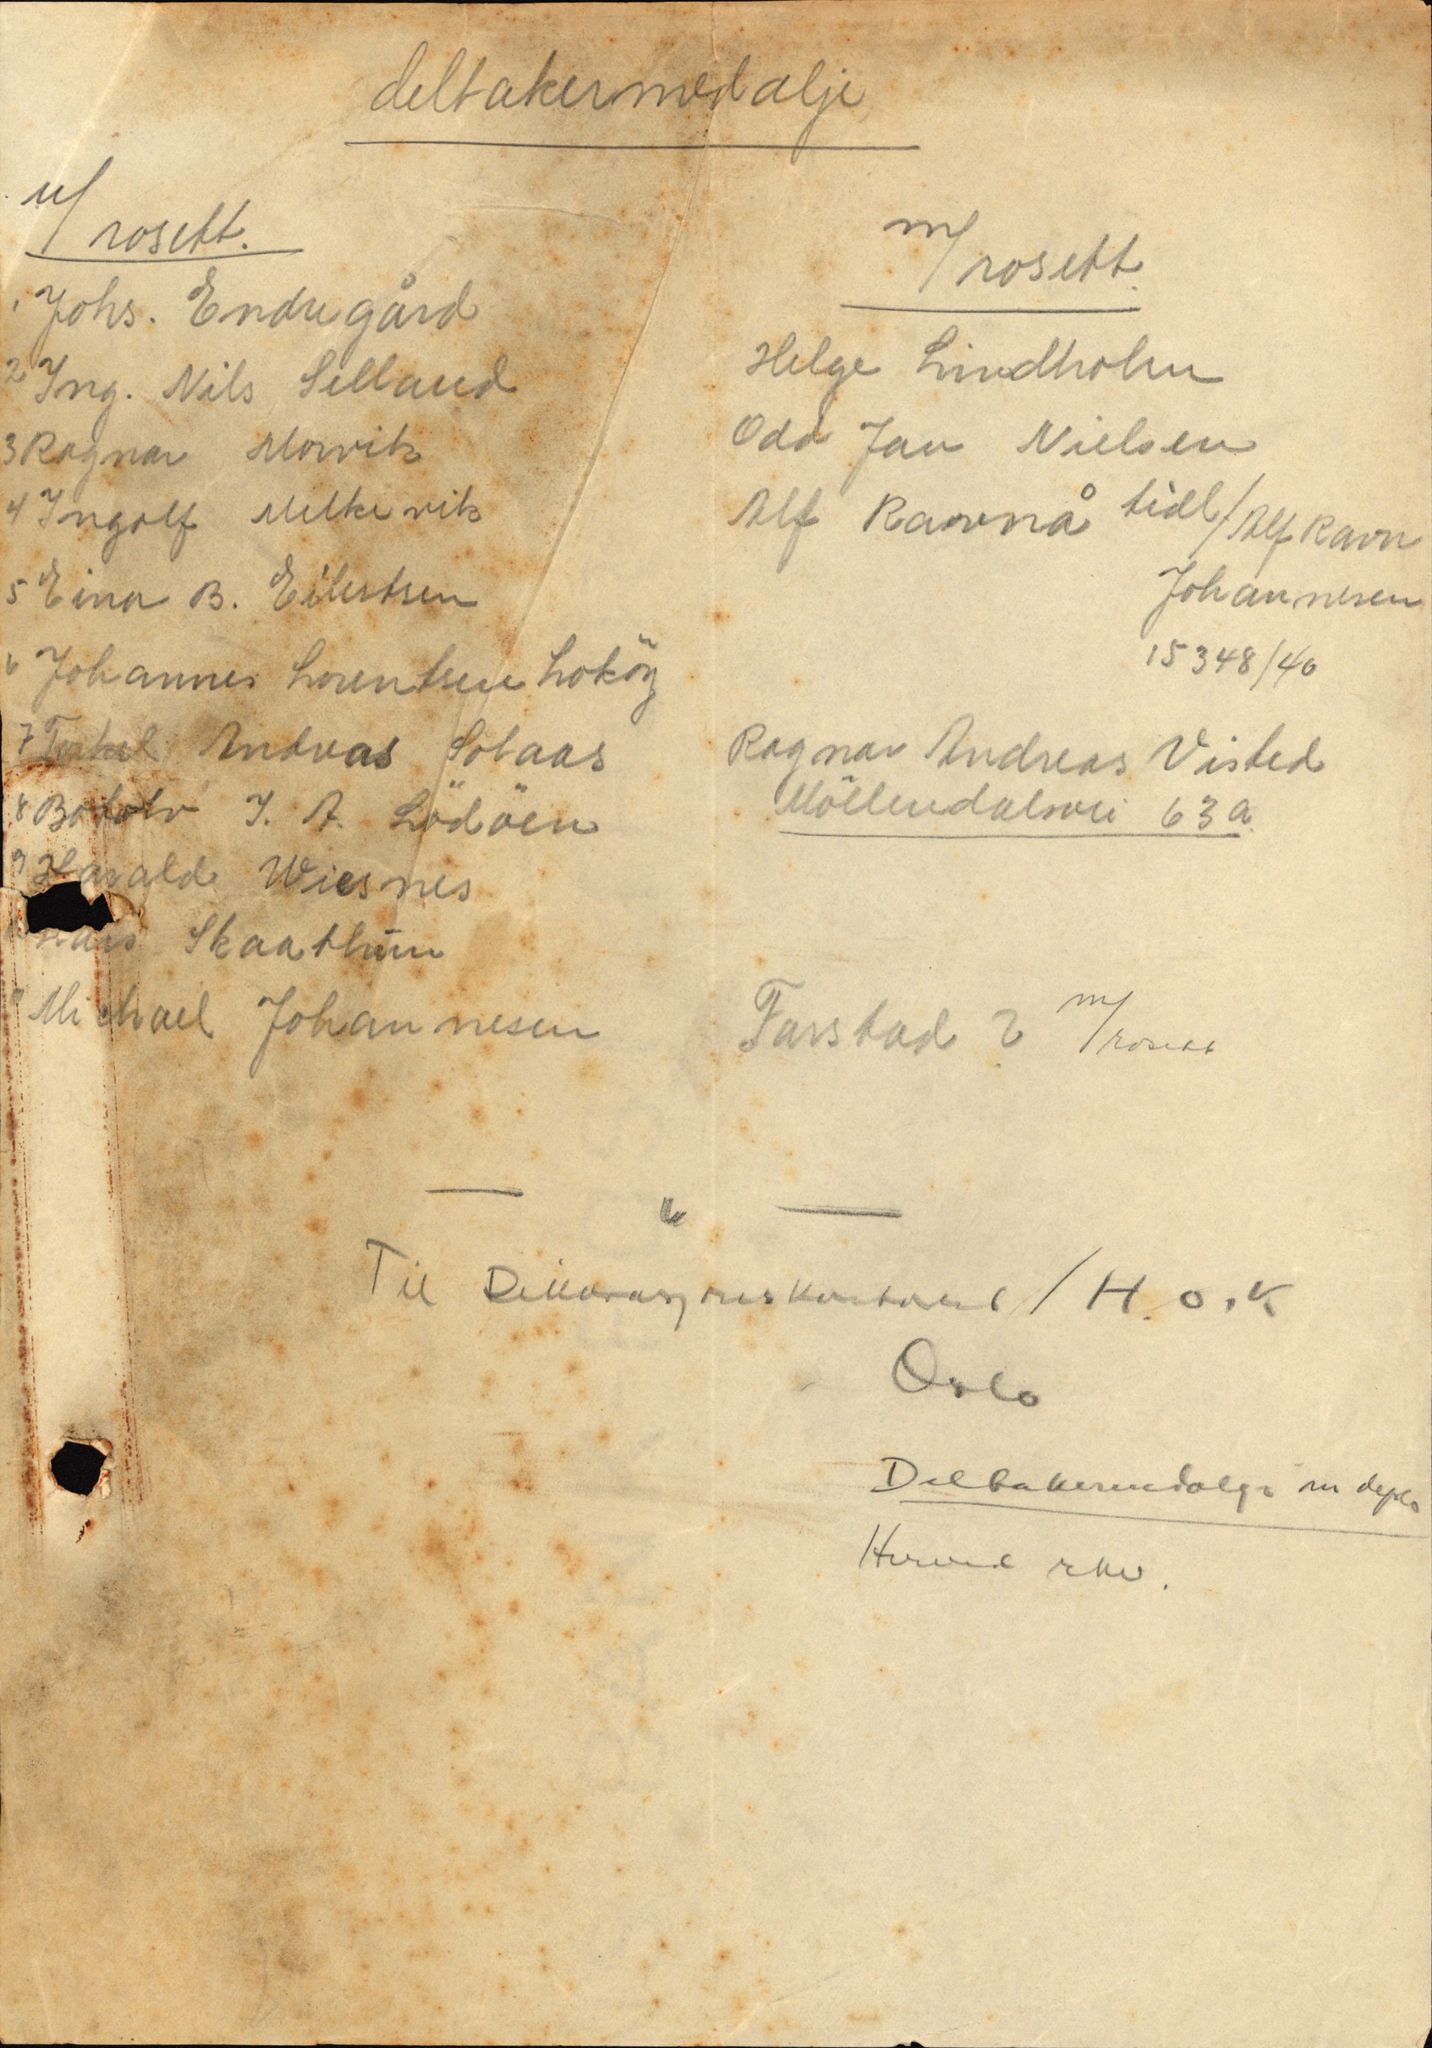 deltakermedalje
u/rosett.
1 Johs. Endregård
2 Ing. Nils Selland
3 Ragnar Morvik
4 Ingolf Melkevik
5 Einar B. Eilertsen
6 Johannes Lorentsen Loköy
7 Torkel Andreas Solaas
8 Botolv J. A. Lödöen
9 Harald Wiesnes
Skaathun
Michael Johannesen
m/rosett.
Helge Lindholm
Odd Jan Nielsen
Alf Ravnå tidl/Alf Ravn
Johannesen
15348/40
Ragnar Andreas Visted
Möllendalsvei 63a.
Farstad ? m/rosett
— " —
Til Dekorasjonskontoret / H.O.K
Oslo
Deltakermedalje m